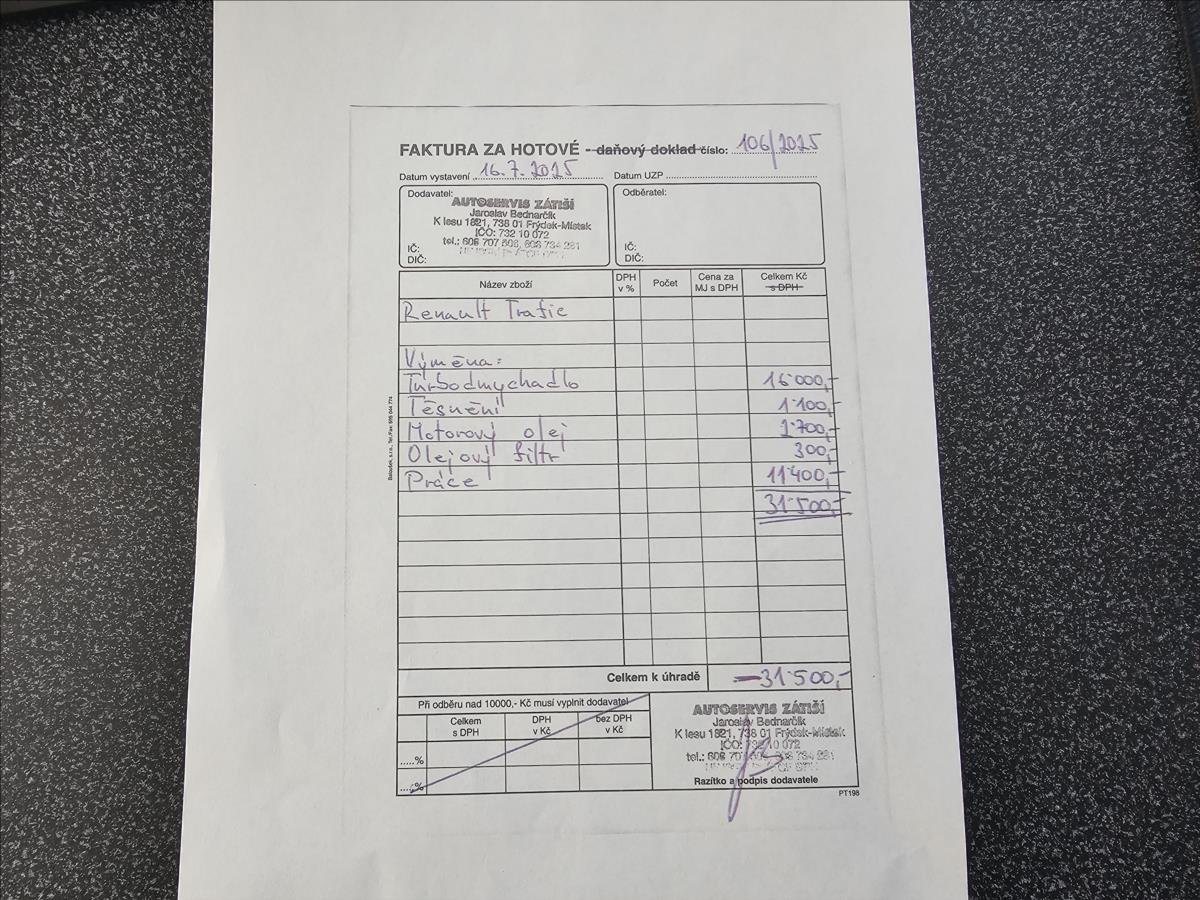 FAKTURA ZA HOTOVÉ - daňový doklad číslo: 106/2025
Datum vystavení 16.7.2025 Datum UZP
Dodavatel:
AUTOSERVIS ZÁTIŠÍ
Jaroslav Bednarčík
K lesu 1821, 738 01 Frýdek-Místek
IČO: 732 10 072
tel.: 608 707
IČ:
DIČ:
Odběratel:
IČ:
DIČ:
Název zboží DPH v % Počet Cena za MJ s DPH Celkem Kč s DPH
Renault Trafic
Výměna:
Turbodmychadlo 16'000,-
Těsnění 1'100,-
Motorový olej 2'700,-
Olejový filtr 300,-
Práce 11'400,-
31'500,-
Celkem k úhradě 31'500,-
Při odběru nad 10000,- Kč musí vyplnit dodavatel
Celkem s DPH DPH v Kč bez DPH v Kč
.....%
.....%
AUTOSERVIS ZÁTIŠÍ
Jaroslav Bednarčík
K lesu 1821, 738 01 Frýdek-Místek
IČO: 732 10 072
tel.: 608
Razítko a podpis dodavatele
PT198